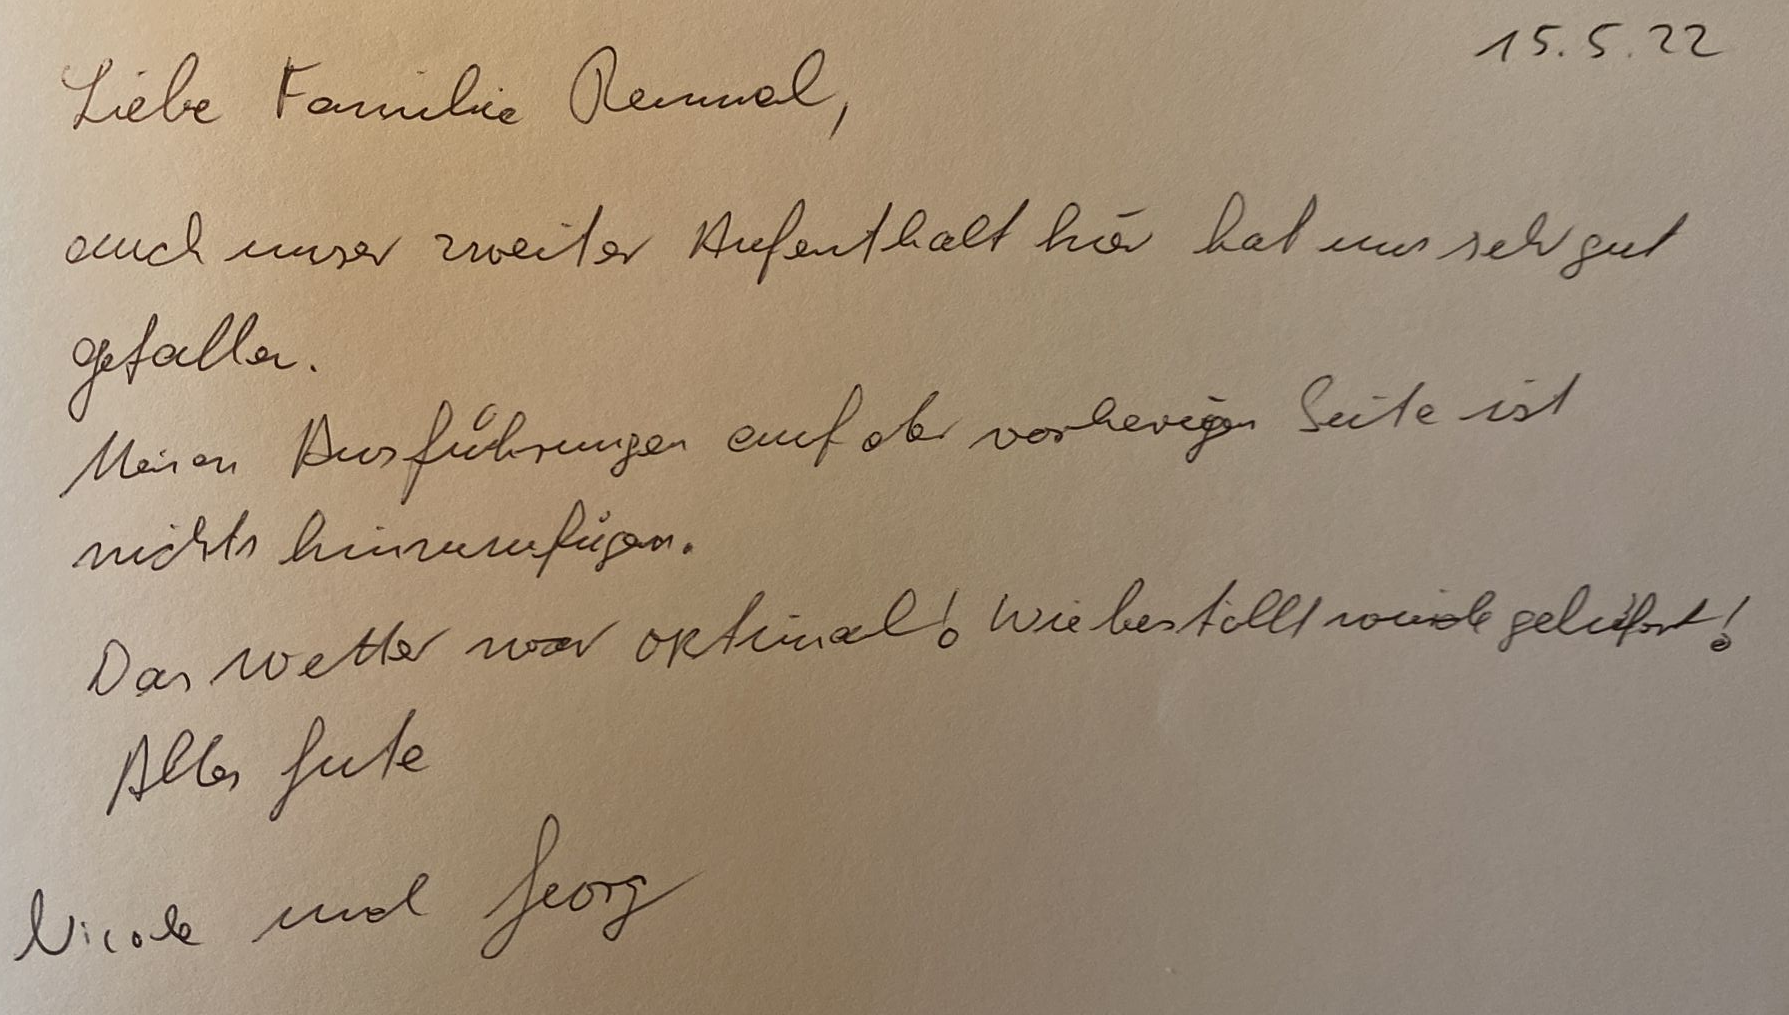 15.5.22
Liebe Familie
auch unser zweiter Aufenthalt hier hat uns sehr gut
gefallen.
Meinen Ausführungen auf der vorherigen Seite ist
nichts hinzuzufügen.
Das Wetter war optimal! Wie bestellt wurde geliefert!
Alles Gute
Nicole und Georg